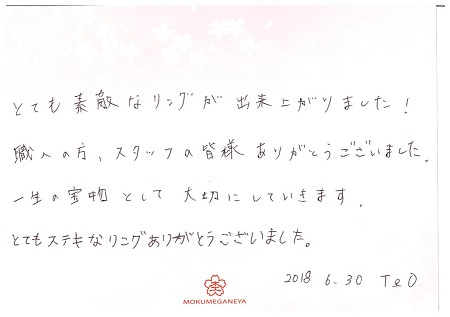 とても素敵なリングが出来上がりました!
職人の方、スタッフの皆様ありがとうございました。
一生の宝物として大切にしていきます。
とてもステキなリングありがとうございました。
2018 6.30 T&O
MOKUMEGANEYA